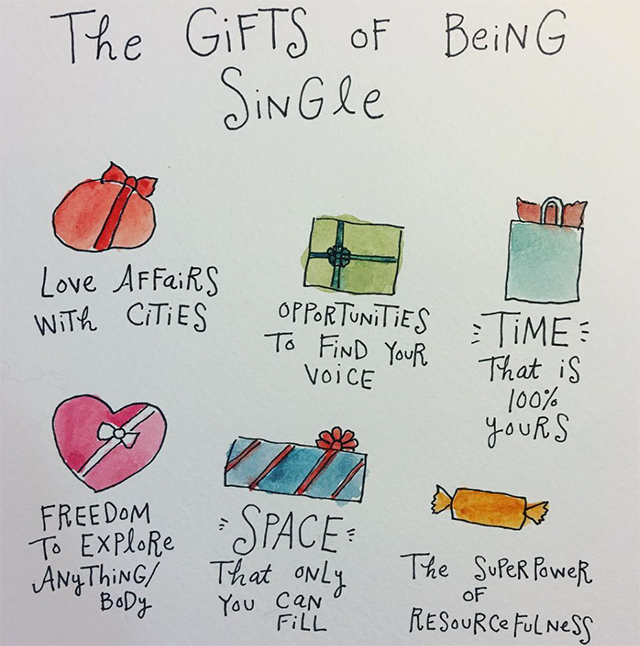 The GiFTS OF BeiNG
SiNGle
Love AFFaiRS
WiTh CiTieS
OPPORTUNiTiES
To FiND YouR
VOiCE
TiME
That iS
100%
YouRS
FREEDOM
To EXPloRe
ANyThiNG/
BoDy
SPACE
That oNLy
You CaN
FiLL
The SuPeRPoWeR
OF
RESouRCeFulNeSS